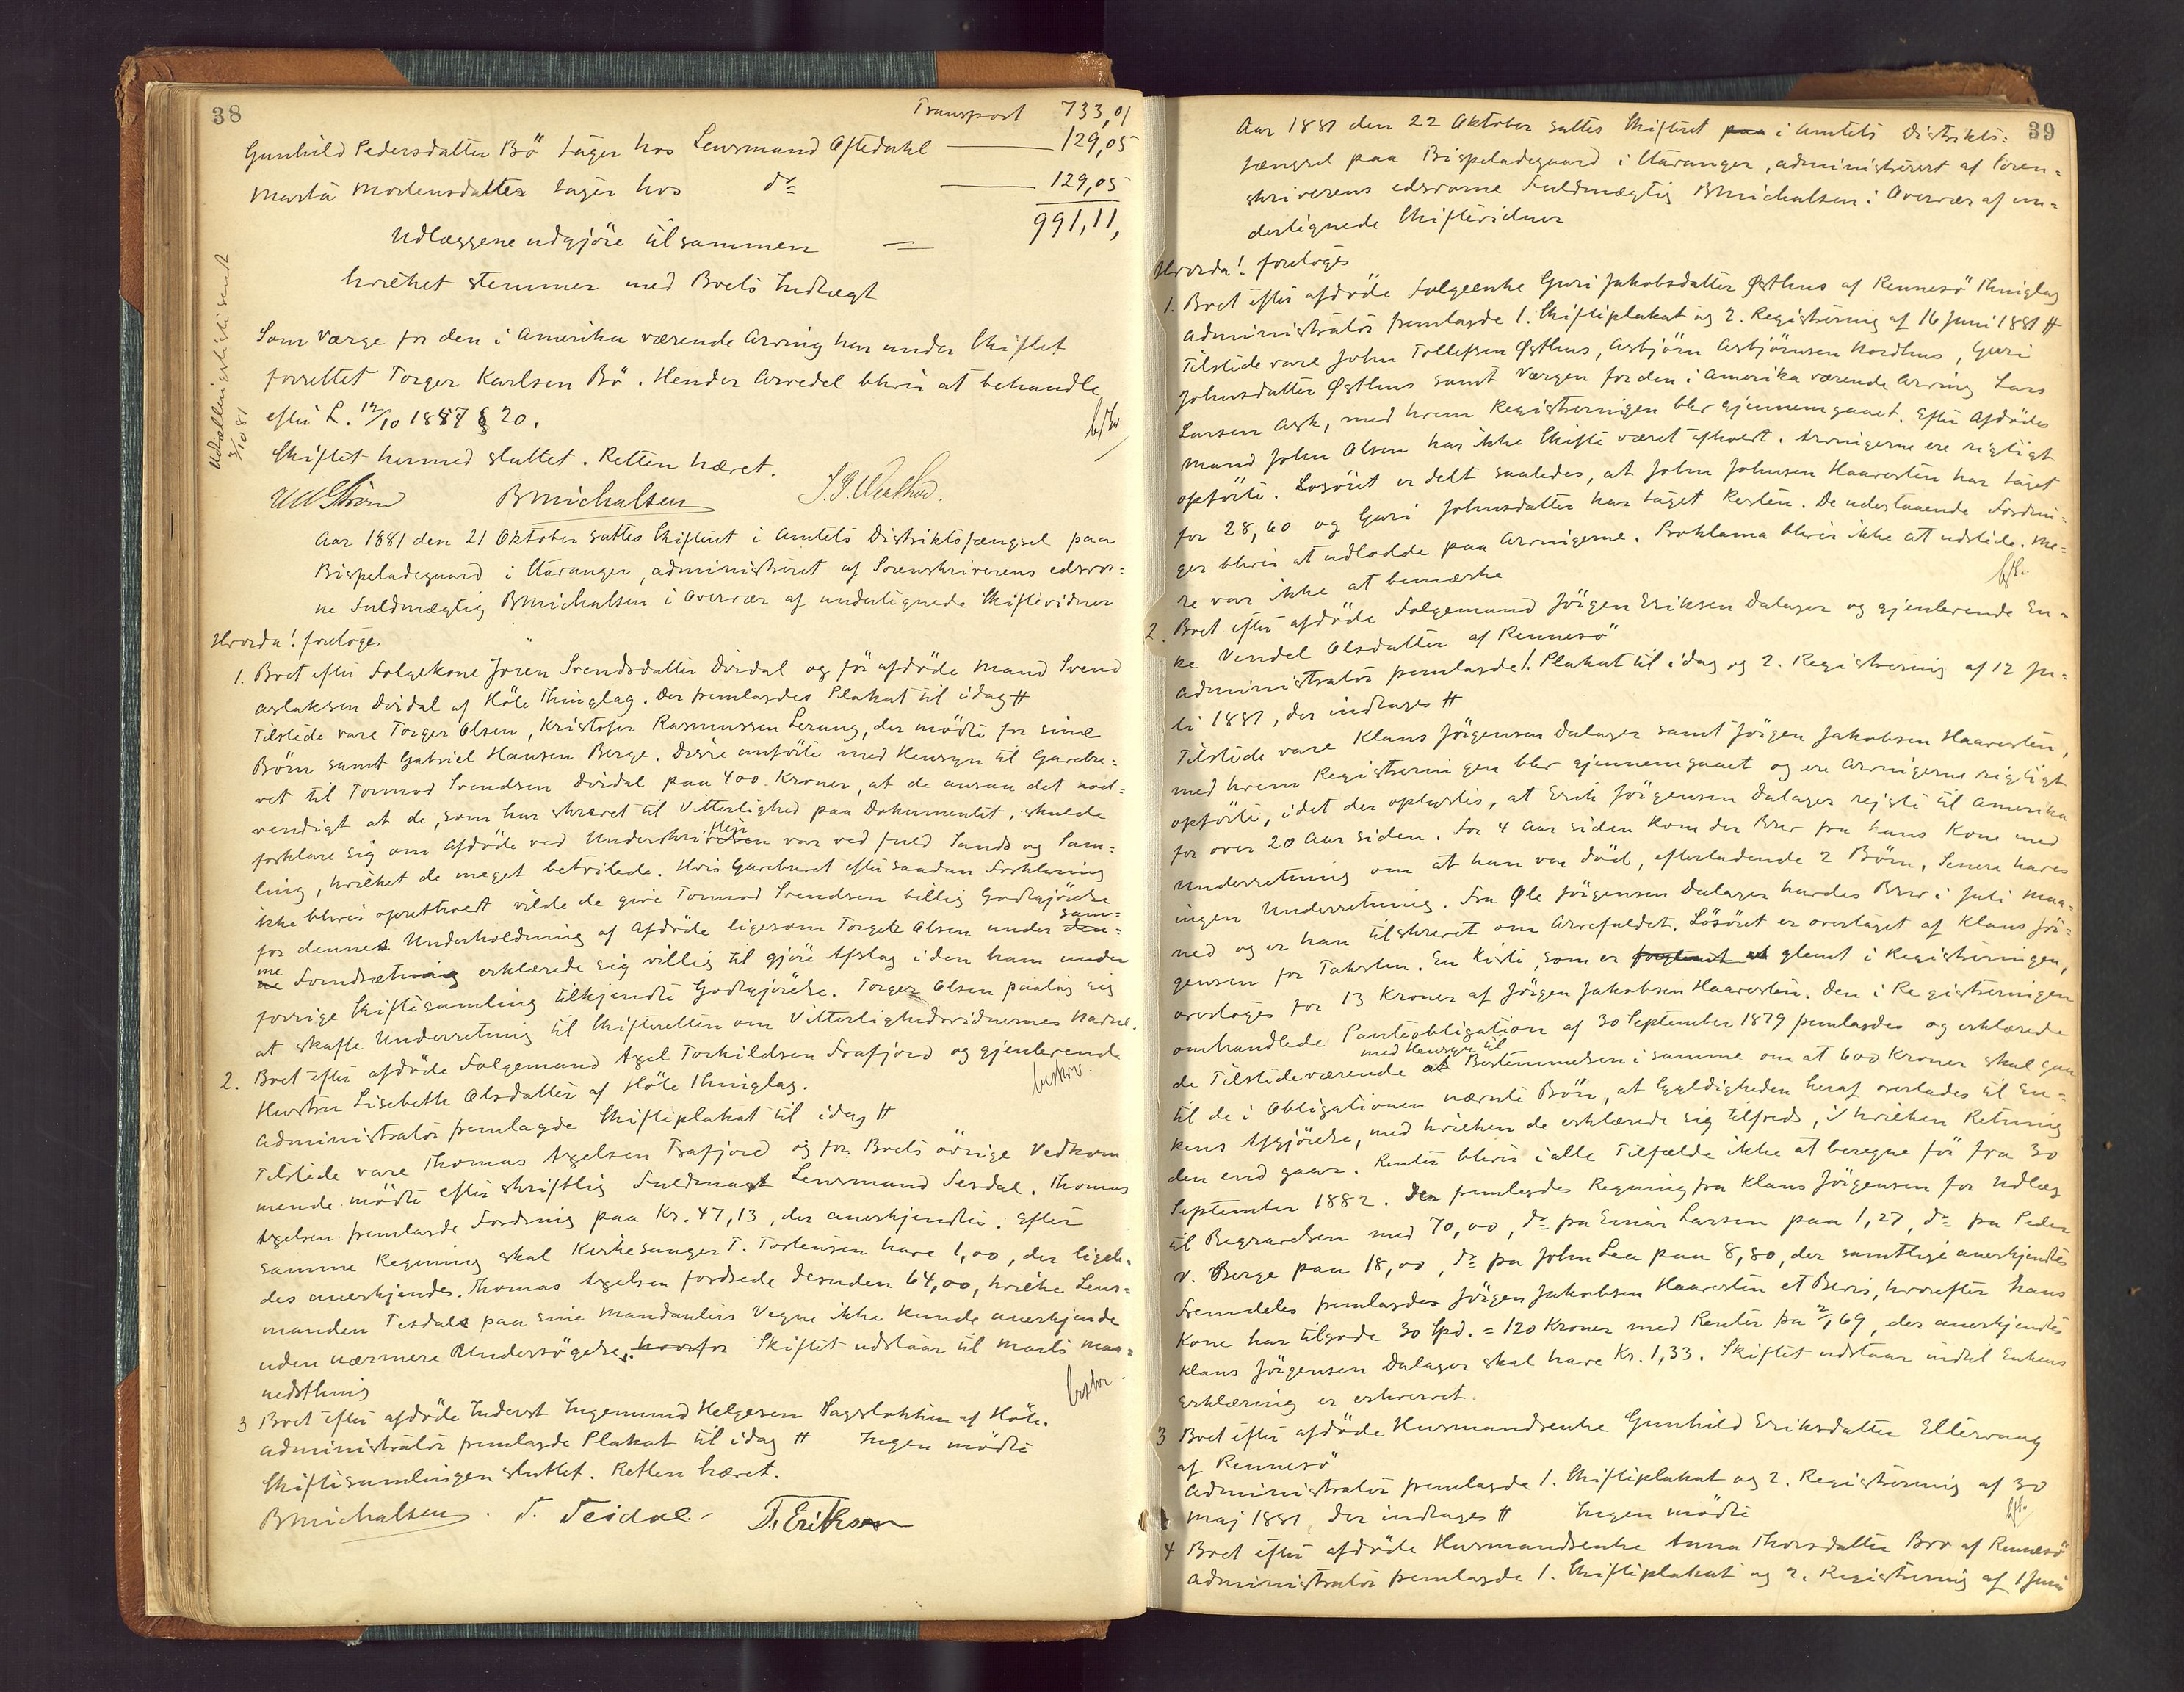 38
Transport 733,01
Gunhild Pedersdatter Bö tager hos Lensmand Oftedahl — 129,05
Marta Mortensdatter tager hos do — 129,05
Udlæggene udgjöre tilsammen — 991,11,
hvilket stemmer med Boets Indtægt
Som Værge for den i Amerika værende Arving har under Skiftet
forrettet Torger Karlsen Bö. Hendes Arvedel bliver at behandle
efter L. 12/10 1857 § 20.
Skiftet hermed sluttet. Retten hævet.
BMichalsen
Aar 1881 den 21 Oktober sattes Skifteret i Amtets Distriktsfængsel paa
Bispeladegaard i Stavanger, administreret af Sorenskriverens edsvor=
ne Fuldmægtig BMichalsen i Overvær af undertegnede Skiftevidner
Hvorda! foretoges
1. Boet efter Folgekone Joren Svendsdatter Dirdal og för afdöde Mand Svend
Aslaksen Dirdal af Höle Thinglag. Der fremlagdes Plakat til idag #
Tilstede vare Torger Olsen, Kristofer Rasmussen Lerang, der mödte for sine
Börn samt Gabriel Hansen Berge. Disse anförte med Hensyn til Gavebre=
vet til Tormod Svendsen Dirdal paa 400 Kroner, at de ansaa det nöd=
vendigt at de, som har skrevet til Vitterlighed paa Dokumentet, skulde
forklare sig om Afdöde ved Underskriften var ved fuld Sands og Sam=
ling, hvilket de meget betvilede. Hvis Gavebrevet efter saadan Forklaring
ikke bliver oprettholdt vilde de give Tormod Svendsen billig Godtgjörelse
for dennes Underholdning af Afdöde ligesom Torger Olsen under sam=
me Forudsætning erklærede sig villig til gjöre Afslag i den ham under
forrige Skiftesamling tilkjendte Godtgjörelse. Torger Olsen paatog sig
at skaffe Underretning til Skifteretten om Vitterlighedsvidnernes Navne.
beskrv.
2. Boet efter afdöde Folgemand Axel Torkildsen Frafjord og gjenlevende
Hustru Lisebeth Olsdatter af Höle Thinglag.
Administrator fremlagde Skifteplakat til idag #
Tilstede vare Thomas Axelsen Frafjord og for Boets övrige Vedkom
mende mödte efter skriftlig Fuldmagt Lensmand Tesdal. Thomas
Axelsen fremlagde Fordring paa Kr. 47,13, der anerkjendtes. Efter
samme Regning skal Kirkesanger T. Torlensen have 1,00, der ligele=
des anerkjendes. Thomas Axelsen fordrede desuden 64,00, hvilke Lens=
manden Tesdal paa sine Mandanters Vegne ikke kunde anerkjende
uden nærmere Undersögelse, hvorfor Skiftet udstaar til Marts Maa=
nedsthing
beskrv.
3 Boet efter afdöde Inderst Ingemund Helgesen Hagslokken af Höle.
Administrator fremlagde Plakat til idag # Ingen mödte
Skiftesamlingen sluttet. Retten hævet.
BMichalsen. T. Tesdal. T. Eriksen
Udtællingsligtisendt
3/10 81
39
Aar 1881 den 22 Oktober sattes Skifteret paa i Amtets Distrikts=
fængsel paa Bispeladegaard i Stavanger, administreret af Soren=
skriverens edsvorne Fuldmægtig BMichalsen i Overvær af un=
dertegnede Skiftevidner
Hvorda! foretoges
1. Boet efter afdöde Folgeenke Guri Jakobsdatter Østhus af Rennesö Thinglag
Administrator fremlagde 1. Skifteplakat og 2. Registrering af 16 Juni 1881 #
Tilstede vare John Tollefsen Østhus, Asbjörn Asbjörnsen Nordhus, Guri
Johnsdatter Østhus samt Værgen for den i Amerika værende Arving Lars
Larsen Ask, med hvem Registreringen blev gjennemgaaet. Efter Afdödes
Mand John Olsen har ikke Skifte været afholdt. Arvingerne ere rigtigt
opförte. Lösöret er delt saaledes, at John Johnsen Haavesten har taget
for 28,60 og Guri Johnsdatter har taget Resten. De udestaaende Fordrin=
ger bliver at udlodde paa Arvingerne. Proklama bliver ikke at udstede. Me=
re var ikke at bemærke
2. Boet efter afdöde Folgemand Jörgen Eriksen Dalager og gjenlevende En=
ke Vendel Olsdatter af Rennesö
Administrator fremlagde 1. Plakat til idag og 2. Registrering af 12 Ju=
li 1881, der indtages #
Tilstede vare Klaus Jörgensen Dalager samt Jörgen Jakobsen Haavesten,
med hvem Registreringen blev gjennemgaaet og ere Arvingerne rigtigt
opförte, idet der oplystes, at Erik Jörgensen Dalager rejste til Amerika
for over 20 Aar siden. For 4 Aar siden kom der Brev fra hans Kone med
Underretning om at han var död, efterladende 2 Börn. Senere haves
ingen Underretning. Fra Ole Jörgensen Dalager havdes Brev i Juli Maa=
ned og er han tilskrevet om Arvefaldet. Lösöret er overtaget af Klaus Jör=
gensen for Taksten. En Kiste, som er forglemt at glemt i Registreringen,
overtoges for 13 Kroner af Jörgen Jakobsen Haavesten. Den i Registreringen
omhandlede Panteobligation af 30 September 1879 fremlagdes og erklærede
de Tilstedeværende med Hensyn til Bestemmelsen i samme om at 600 Kroner skal gaa
til de i Obligationen nævnte Börn, at Gyldigheden heraf overlades til En=
kens Afgjörelse, med hvilken de erklærede sig tilfreds, i hvilken Retning
den end gaar. Renter bliver i alle Tilfælde ikke at beregne för fra 30
September 1882. Der fremlagdes Regning fra Klaus Jörgensen for Udlæg
til Begravelsen med 70,00, do fra Einar Larsen paa 1,27, do fra Peder
V. Berge paa 18,00, do fra John Lea paa 8,80, der samtlige anerkjendtes
Fremdeles fremlagdes Jörgen Jakobsen Haavesten et Bevis, hvorefter hans
Kone har tilgode 30 Spd. = 120 Kroner med Renter fra 2/1 69, der anerkjendtes
Klaus Jörgensen Dalager skal have Kr. 1,33. Skiftet udstaar indtil Enkens
Erklæring er erhvervet.
3 Boet efter afdöde Husmandsenke Gunhild Eriksdatter Ellevaag
af Rennesö
Administrator fremlagde 1. Skifteplakat og 2. Registrering af 30
Maj 1881, der indtages # Ingen mödte
4 Boet efter afdöde Husmandsenke Anna Thorsdatter Bru af Rennesö
Administrator fremlagde 1. Skifteplakat og 2. Registrering af 1 Juni